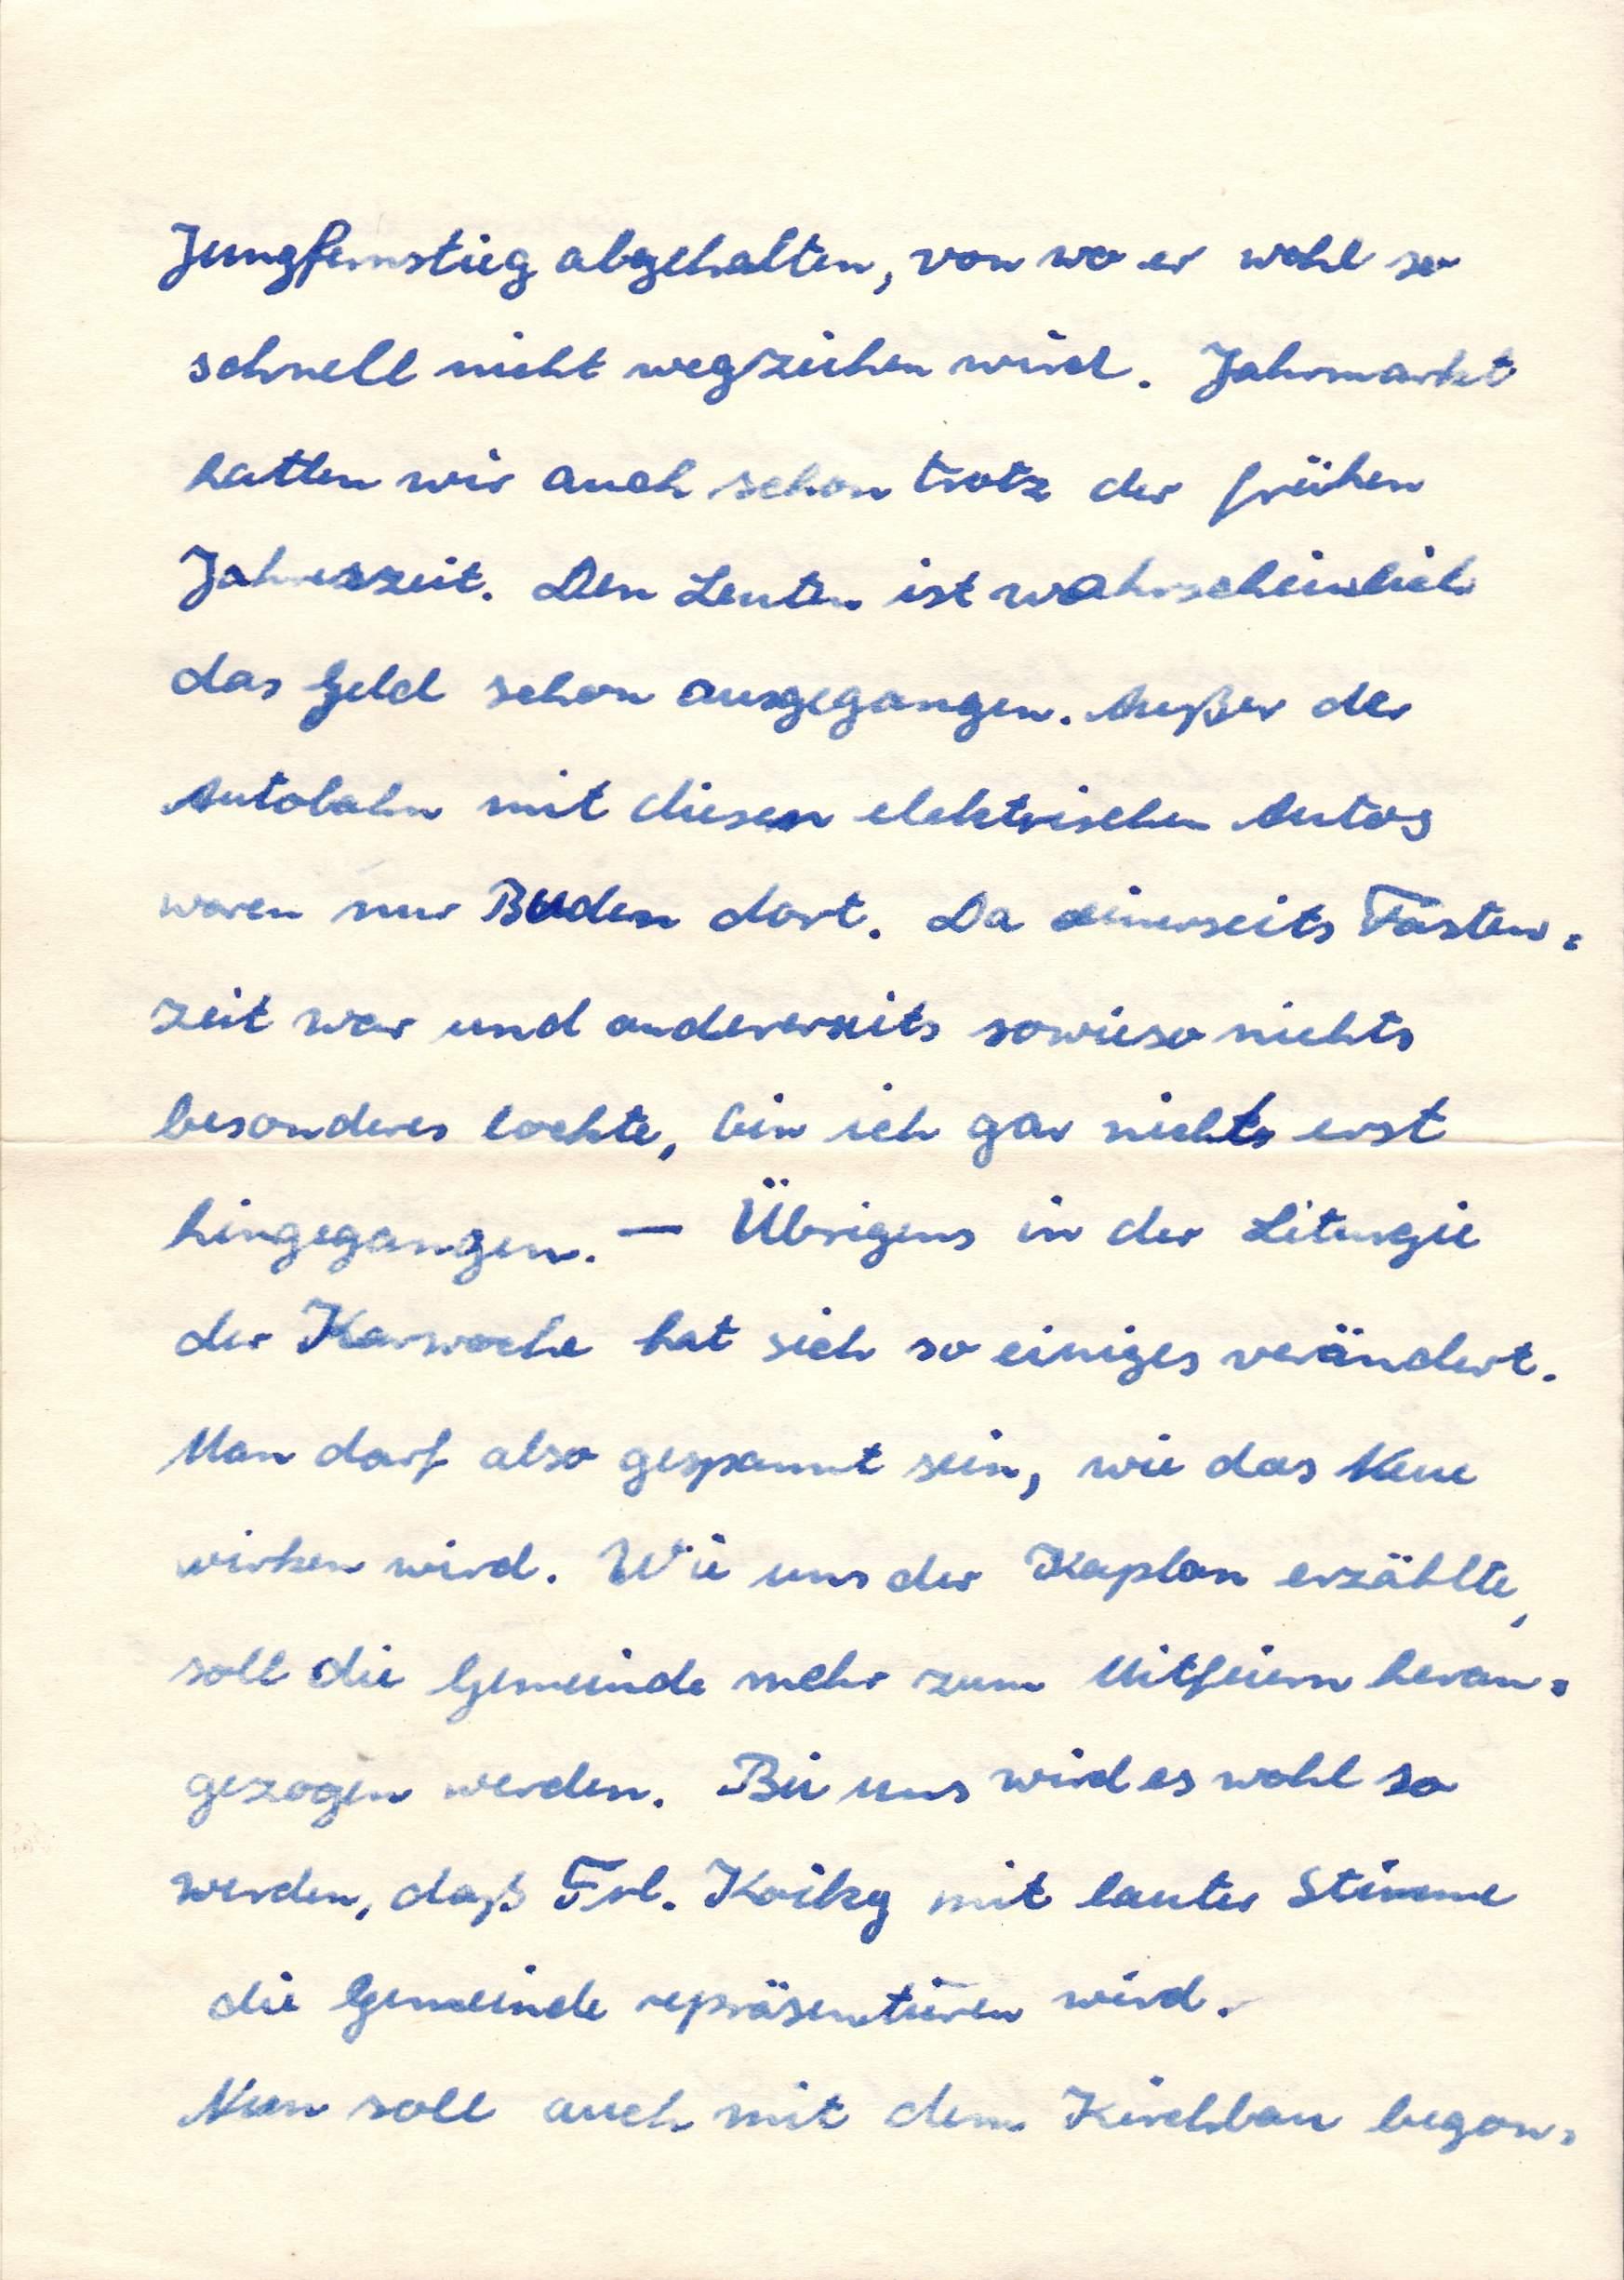 Jungfernstieg abgehalten, von wo er wohl so
schnell nicht wegziehen wird. Jahrmarkt
hatten wir auch schon trotz der frühen
Jahreszeit. Den Leuten ist wahrscheinlich
das Geld schon ausgegangen. Außer der
Autobahn mit diesen elektrischen Autos
waren nur Buden dort. Da einerseits Fasten=
zeit war und andererseits sowieso nichts
besonderes lockte, bin ich gar nichts erst
hingegangen. — Übrigens in der Liturgie
der Karwoche hat sich so einiges verändert.
Man darf also gespannt sein, wie das Neue
wirken wird. Wie uns der Kaplan erzählte,
soll die Gemeinde mehr zum Mitfeiern heran=
gezogen werden. Bei uns wird es wohl so
werden, daß Frl. mit lauter Stimme
die Gemeinde repräsentieren wird.
Nun soll auch mit dem Kirchbau begon=